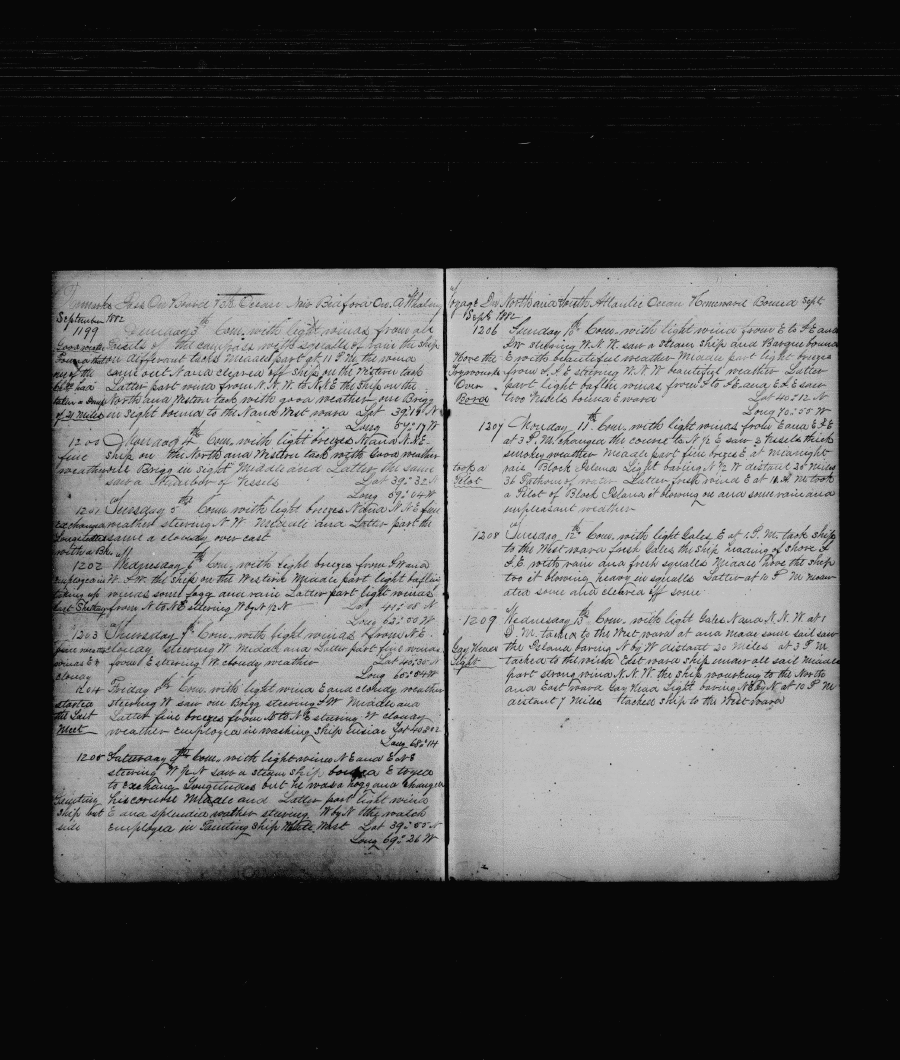 Remarks On Board Ocean New Bedford On A Whaling
September 1882
1199 Sunday 3th Com. with light winds from all
Points of the compass with spells of rain the ship
on different tacks Middle part at 11 P.M. the wind
came out N and cleared off Ship on the Western tack
Latter part wind from N.N.W. to N.N.E the Ship on the
North and Western tack with good weather one Brigg
in sight bound to the N and West ward Lat 39° 19 N
Long 57° 17 W
1200 Monday 4th Com. with light breezes N and N.N.E.
fine ship on the North and Western tack with Good weather
weather one Brigg in Sight Middle and Latter the same
saw a Number of Vessels Lat 39° 32 N
Long 59° 04 W
1201 Tuesday 5th Com. with light breezes N and N.N.E fine
exchanged weather steering N W Middle and Latter part the
Longitudes same a cloudy over cast
with a Bk
1202 Wednesday 6th Com. with light breezes from SW and
employed in W.S.W. the ship on the Western Middle part light baffling
winds some fogg and rain Latter part light winds
from N to N.E steering W by N 1/2 N Lat 41° 08 N
Long 62° 00 W
1203 Thursday 7th Com. with light winds from N.E.
cloudy steering W Middle and Latter part fine winds
winds E & from E steering W cloudy weather Lat 40° 30 N
cloudy Long 65° 04 W
1204 Friday 8th Com. with light wind E and cloudy weather
started steering W saw one Brigg steering S.W Middle and
the Last Latter fine breezes from N to N.E steering W cloudy
Meat weather employed in washing Ship inside Lat 40° 02
Long 68° 14
1205 Saturday 9th Com. with light winds N.E and E.N.E
steering W 1/2 N saw a steam ship bound E tryed
to Exchang Longitudes but he was a hogg and changed
his course Middle and Latter part light wind
Painting E and splendid weather steering W by N the watch
Ship out employed in Painting Ship White West Lat 39° 55 N
side Long 69° 26 W
Voyage In North and South Atlantic Ocean Homeward Bound Sept
Sept 1882
1206 Sunday 10th Com. with light wind from E to S.E and
SW steering W.N.W. saw a steam ship and Barque bound
Hove the E with beautiful weather Middle part light breezes
Tryworks from S.S.E steering W.N.W beautiful weather Latter
Over part light baffling winds from S to S.E and E.S.E saw
Bord two Vessels bound E ward Lat 40° 12 N
Long 70° 55 W
1207 Monday 11th Com. with light winds from E and E.S.E
at 3 P.M. changed the course to N 1/2 E saw 2 Vessels thick
smokey weather Middle part fine breeze E at Midnight
took a rais Block Island Light baring N 1/2 W distant 20 Miles
Pilot 36 Fathoms of water Latter fresh wind E at 10 A.M. took
a Pilot of Block Island it blowing on and some rain and
unpleasant weather
1208 Tuesday 12th Com. with light Gales E at 1 P.M. tack ship
to the West ward fresh Gales the ship heading of shore S
S.E. with rain and fresh squalls Middle hove the ship
too it blowing heavy in squalls Latter at 10 P.M moderated
some and cleared off some
1209 Wednesday 13th Com. with light Gales N and N.N.W. at 1
P.M. tacked to the West ward at and made some sail saw
Gay Head the Island baring N by W distant 20 Miles at 3 P.M
Light tacked to the wind East ward ship under all sail Middle
part strong wind N.N.W. the ship working to the North
and East ward Gay Head Light baring N.E by N at 10 P.M
distant 7 Miles tacked ship to the West ward